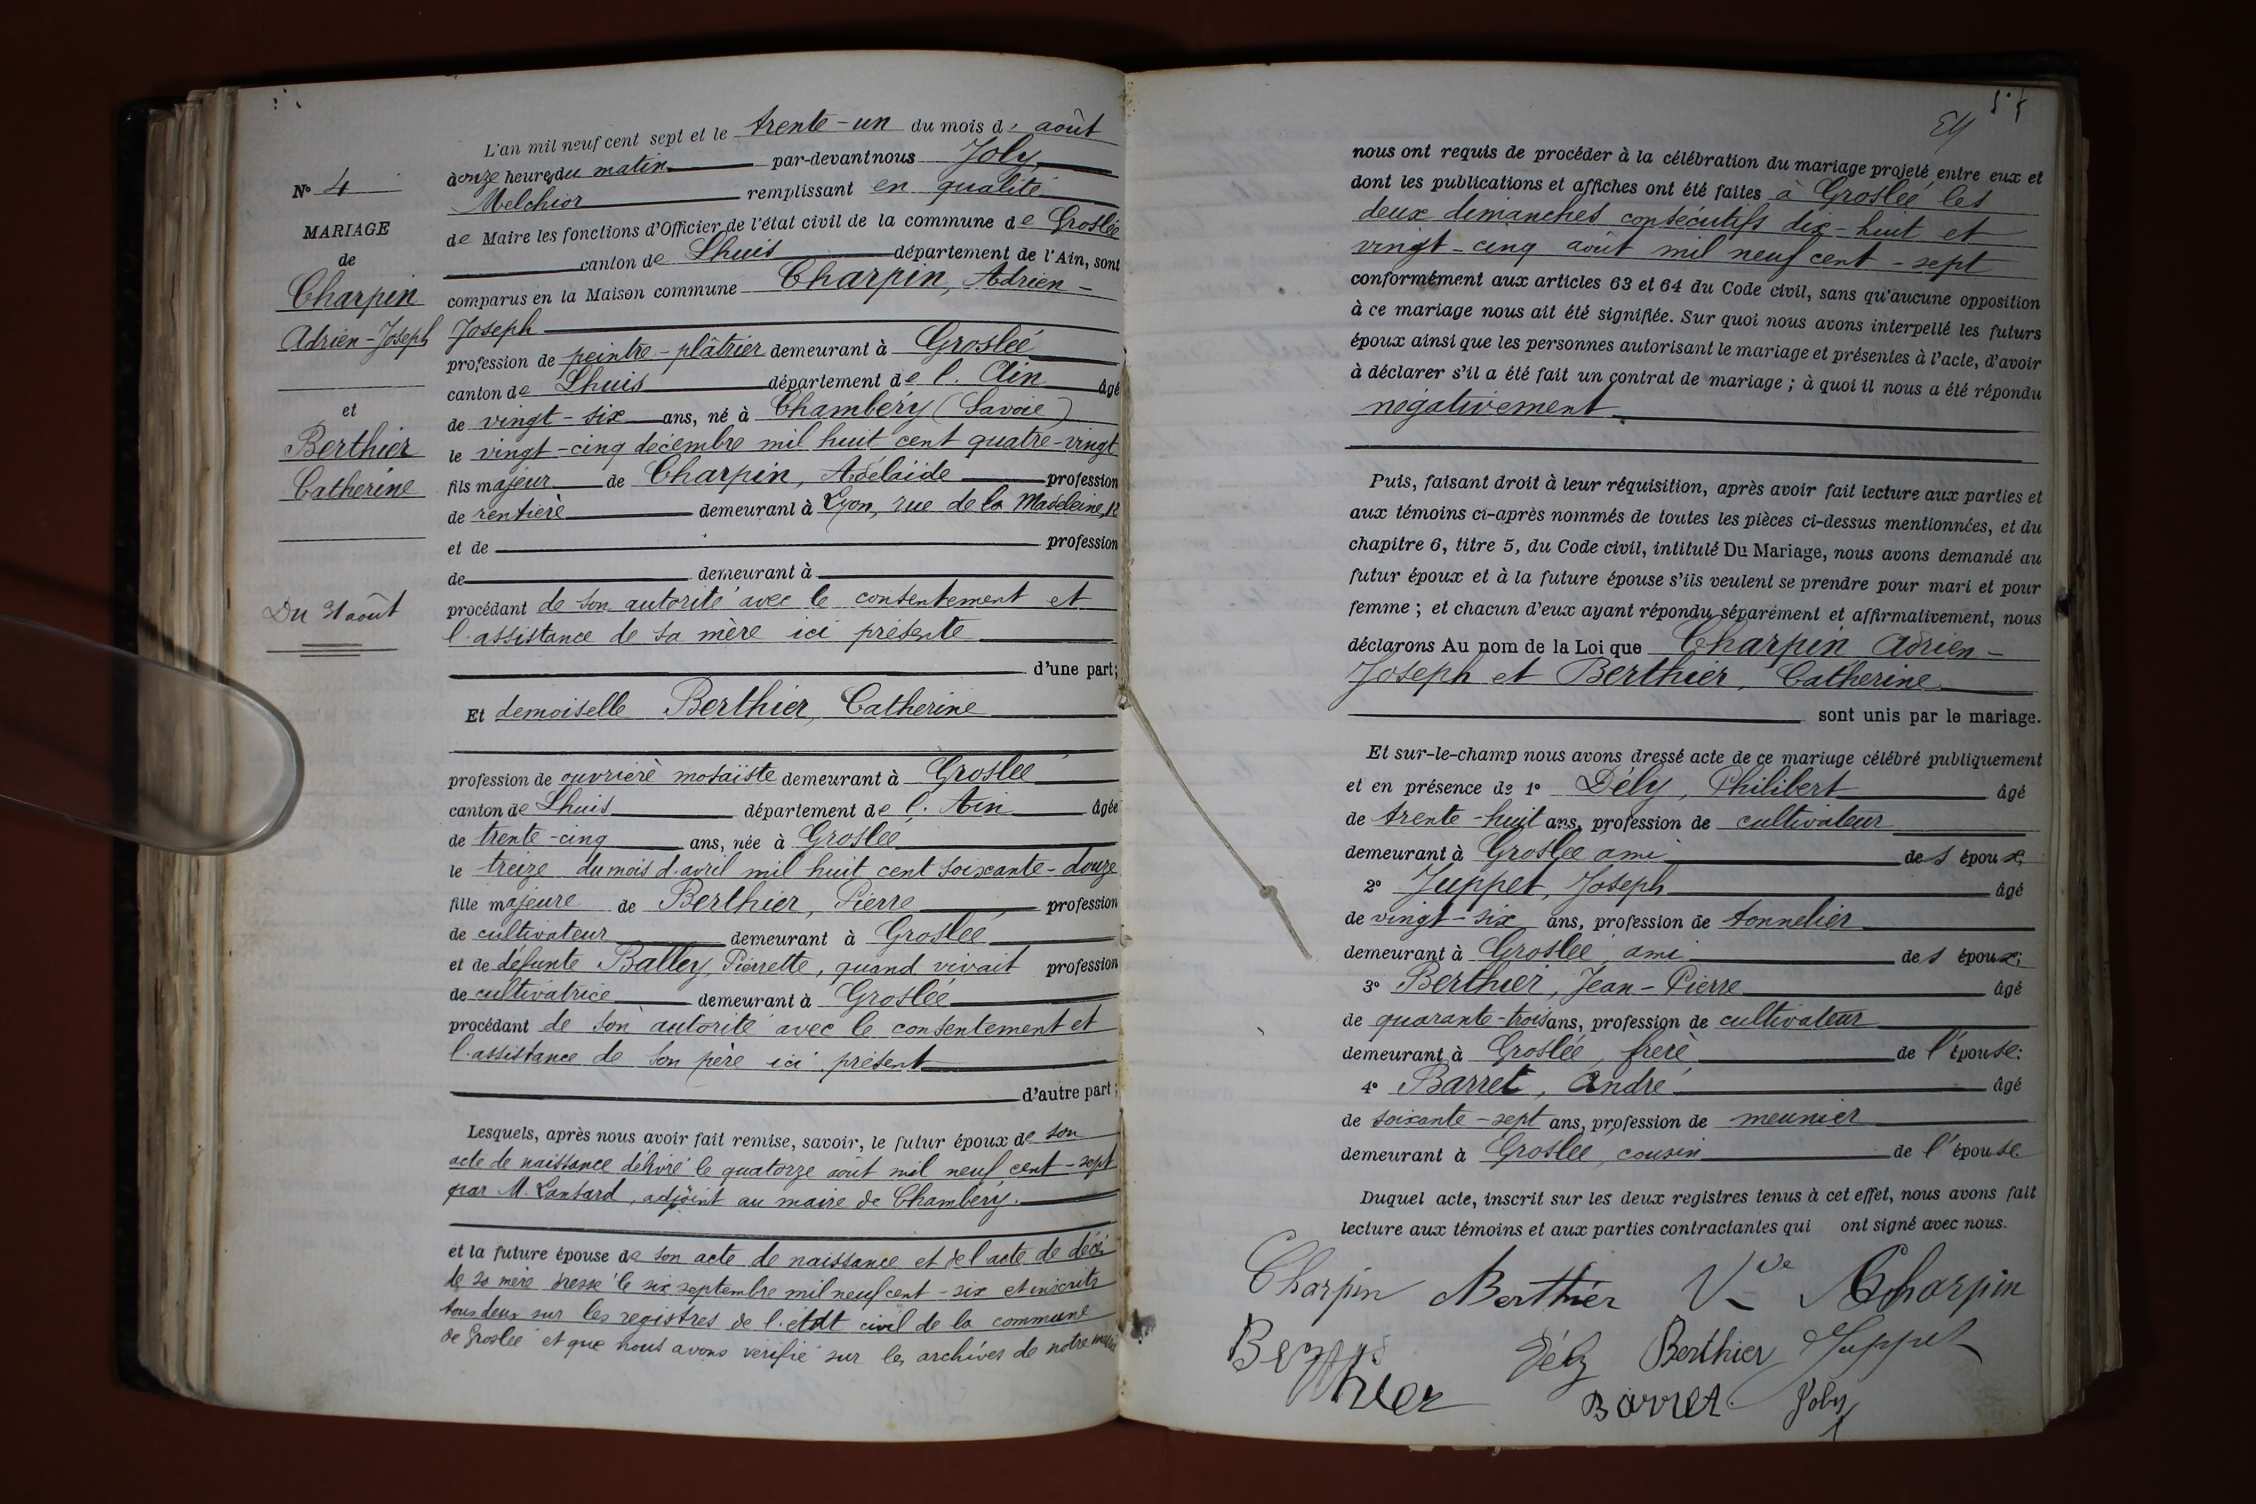 N° 4
MARIAGE
de
Charpin
Adrien-Joseph
et
Berthier
Catherine
Du 31 août
L'an mil neuf cent sept et le trente-un du mois d' août
à onze heures du matin par-devant nous Joly
Melchior remplissant en qualité
de Maire les fonctions d'Officier de l'état civil de la commune de Groslée
canton de Lhuis département de l'Ain, sont
comparus en la Maison commune Charpin, Adrien-
Joseph
profession de peintre-plâtrier demeurant à Groslée
canton de Lhuis département de l'Ain âgé
de vingt-six ans, né à Chambéry (Savoie)
le vingt-cinq décembre mil huit cent quatre-vingt
fils majeur de Charpin, Adélaïde profession
de rentière demeurant à Lyon, rue de la Madeleine, 12
et de profession
de demeurant à
procédant de son autorité avec le consentement et
l'assistance de sa mère ici présente
d'une part;
Et demoiselle Berthier, Catherine
profession de ouvrière mosaïste demeurant à Groslée
canton de Lhuis département de l'Ain âgée
de trente-cinq ans, née à Groslée
le treize du mois d'avril mil huit cent soixante-douze
fille majeure de Berthier, Pierre profession
de cultivateur demeurant à Groslée
et de défunte Balley, Pierrette, quand vivait profession
de cultivatrice demeurant à Groslée
procédant de son autorité avec le consentement et
l'assistance de son père ici présent
d'autre part;
Lesquels, après nous avoir fait remise, savoir, le futur époux de son
acte de naissance délivré le quatorze août mil neuf cent-sept
par M. Lansard, adjoint au maire de Chambéry.
et la future épouse de son acte de naissance et de l'acte de décès
de sa mère dressé le six septembre mil neuf cent-six et inscrits
tous deux sur les registres de l'état civil de la commune
de Groslée et que nous avons vérifié sur les archives de notre mairie
54
nous ont requis de procéder à la célébration du mariage projeté entre eux et
dont les publications et affiches ont été faites à Groslée les
deux dimanches consécutifs dix-huit et
vingt-cinq août mil neuf cent-sept
conformément aux articles 63 et 64 du Code civil, sans qu'aucune opposition
à ce mariage nous ait été signifiée. Sur quoi nous avons interpellé les futurs
époux ainsi que les personnes autorisant le mariage et présentes à l'acte, d'avoir
à déclarer s'il a été fait un contrat de mariage; à quoi il nous a été répondu
négativement
Puis, faisant droit à leur réquisition, après avoir fait lecture aux parties et
aux témoins ci-après nommés de toutes les pièces ci-dessus mentionnées, et du
chapitre 6, titre 5, du Code civil, intitulé Du Mariage, nous avons demandé au
futur époux et à la future épouse s'ils veulent se prendre pour mari et pour
femme; et chacun d'eux ayant répondu séparément et affirmativement, nous
déclarons Au nom de la Loi que Charpin Adrien-
Joseph et Berthier, Catherine
sont unis par le mariage.
Et sur-le-champ nous avons dressé acte de ce mariage célébré publiquement
et en présence de 1° Dély, Philibert âgé
de trente-huit ans, profession de cultivateur
demeurant à Groslée ami des époux;
2° Juppet, Joseph âgé
de vingt-six ans, profession de tonnelier
demeurant à Groslée, ami des époux;
3° Berthier, Jean-Pierre âgé
de quarante-trois ans, profession de cultivateur
demeurant à Groslée, frère de l'épouse;
4° Barret, André âgé
de soixante-sept ans, profession de meunier
demeurant à Groslée, cousin de l'épouse
Duquel acte, inscrit sur les deux registres tenus à cet effet, nous avons fait
lecture aux témoins et aux parties contractantes qui ont signé avec nous.
Charpin Berthier Vve Charpin
Berthier Dély Berthier Juppet
Barret Joly